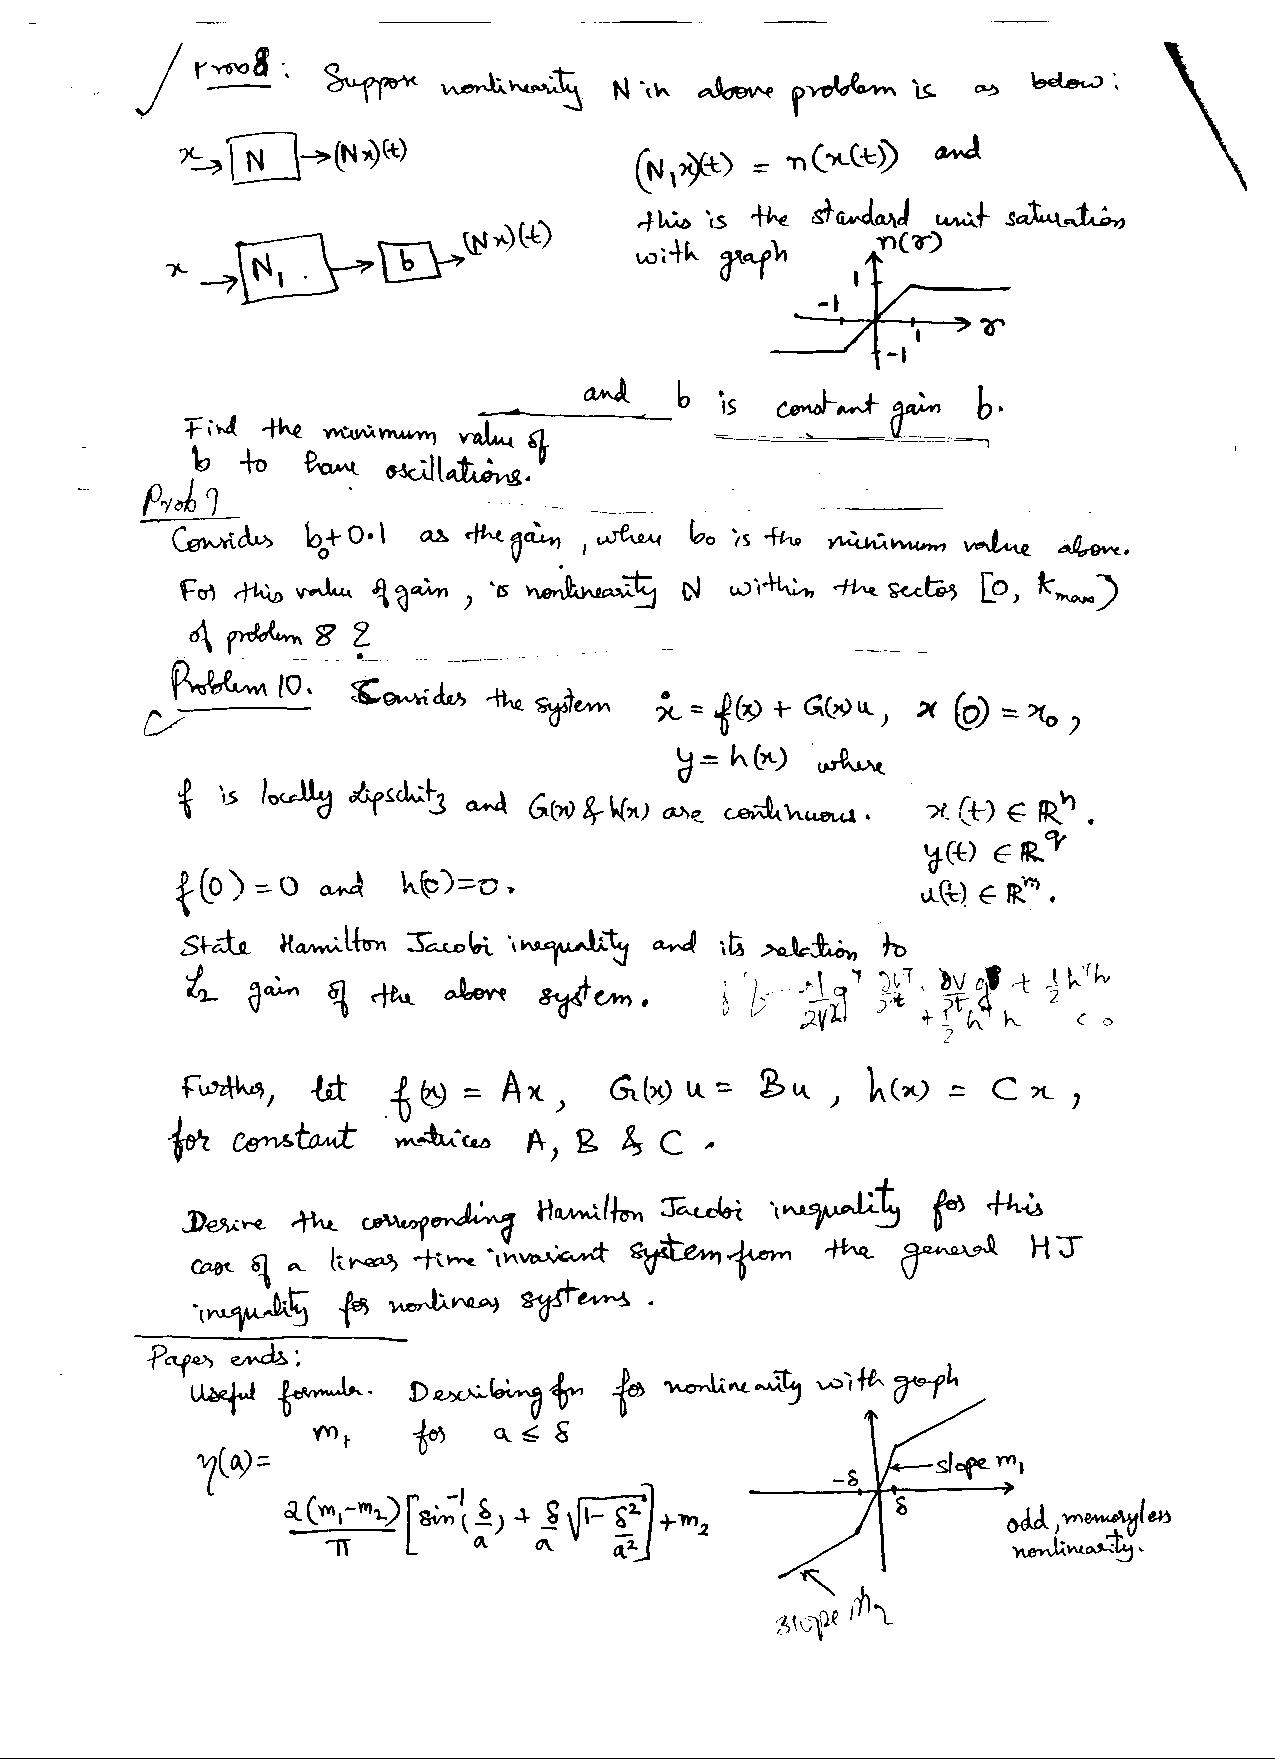 Prob 8: Suppose nonlinearity N in above problem is as below:
x → N → (Nx)(t)
(N₁x)(t) = n(x(t)) and
this is the standard unit saturation
with graph n(r)
x → N₁ → b → (Nx)(t)
1
-1
1
r
-1
and b is constant gain b.
Find the minimum value of
b to have oscillations.
Prob 9
Consider b₀+0.1 as the gain, when b₀ is the minimum value above.
For this value of gain, is nonlinearity N within the sector [0, kmax)
of problem 8?
Problem 10. Consider the system ẋ = f(x) + G(x)u, x(0) = x₀,
y = h(x) where
f is locally Lipschitz and G(x) & h(x) are continuous. x(t) ∈ ℝⁿ.
y(t) ∈ ℝ^q
f(0) = 0 and h(0)=0. u(t) ∈ ℝ^m.
State Hamilton Jacobi inequality and its relation to
L₂ gain of the above system.
Further, let f(x) = Ax, G(x)u = Bu, h(x) = Cx,
for constant matrices A, B & C.
Derive the corresponding Hamilton Jacobi inequality for this
case of a linear time invariant system from the general HJ
inequality for nonlinear systems.
Paper ends:
Useful formula. Describing fn for nonlinearity with graph
η(a) = m₁ for a ≤ δ
2(m₁-m₂)/π [sin⁻¹(δ/a) + δ/a √(1 - δ²/a²)] + m₂
-δ
slope m₁
δ
odd, memoryless
nonlinearity.
slope m₂